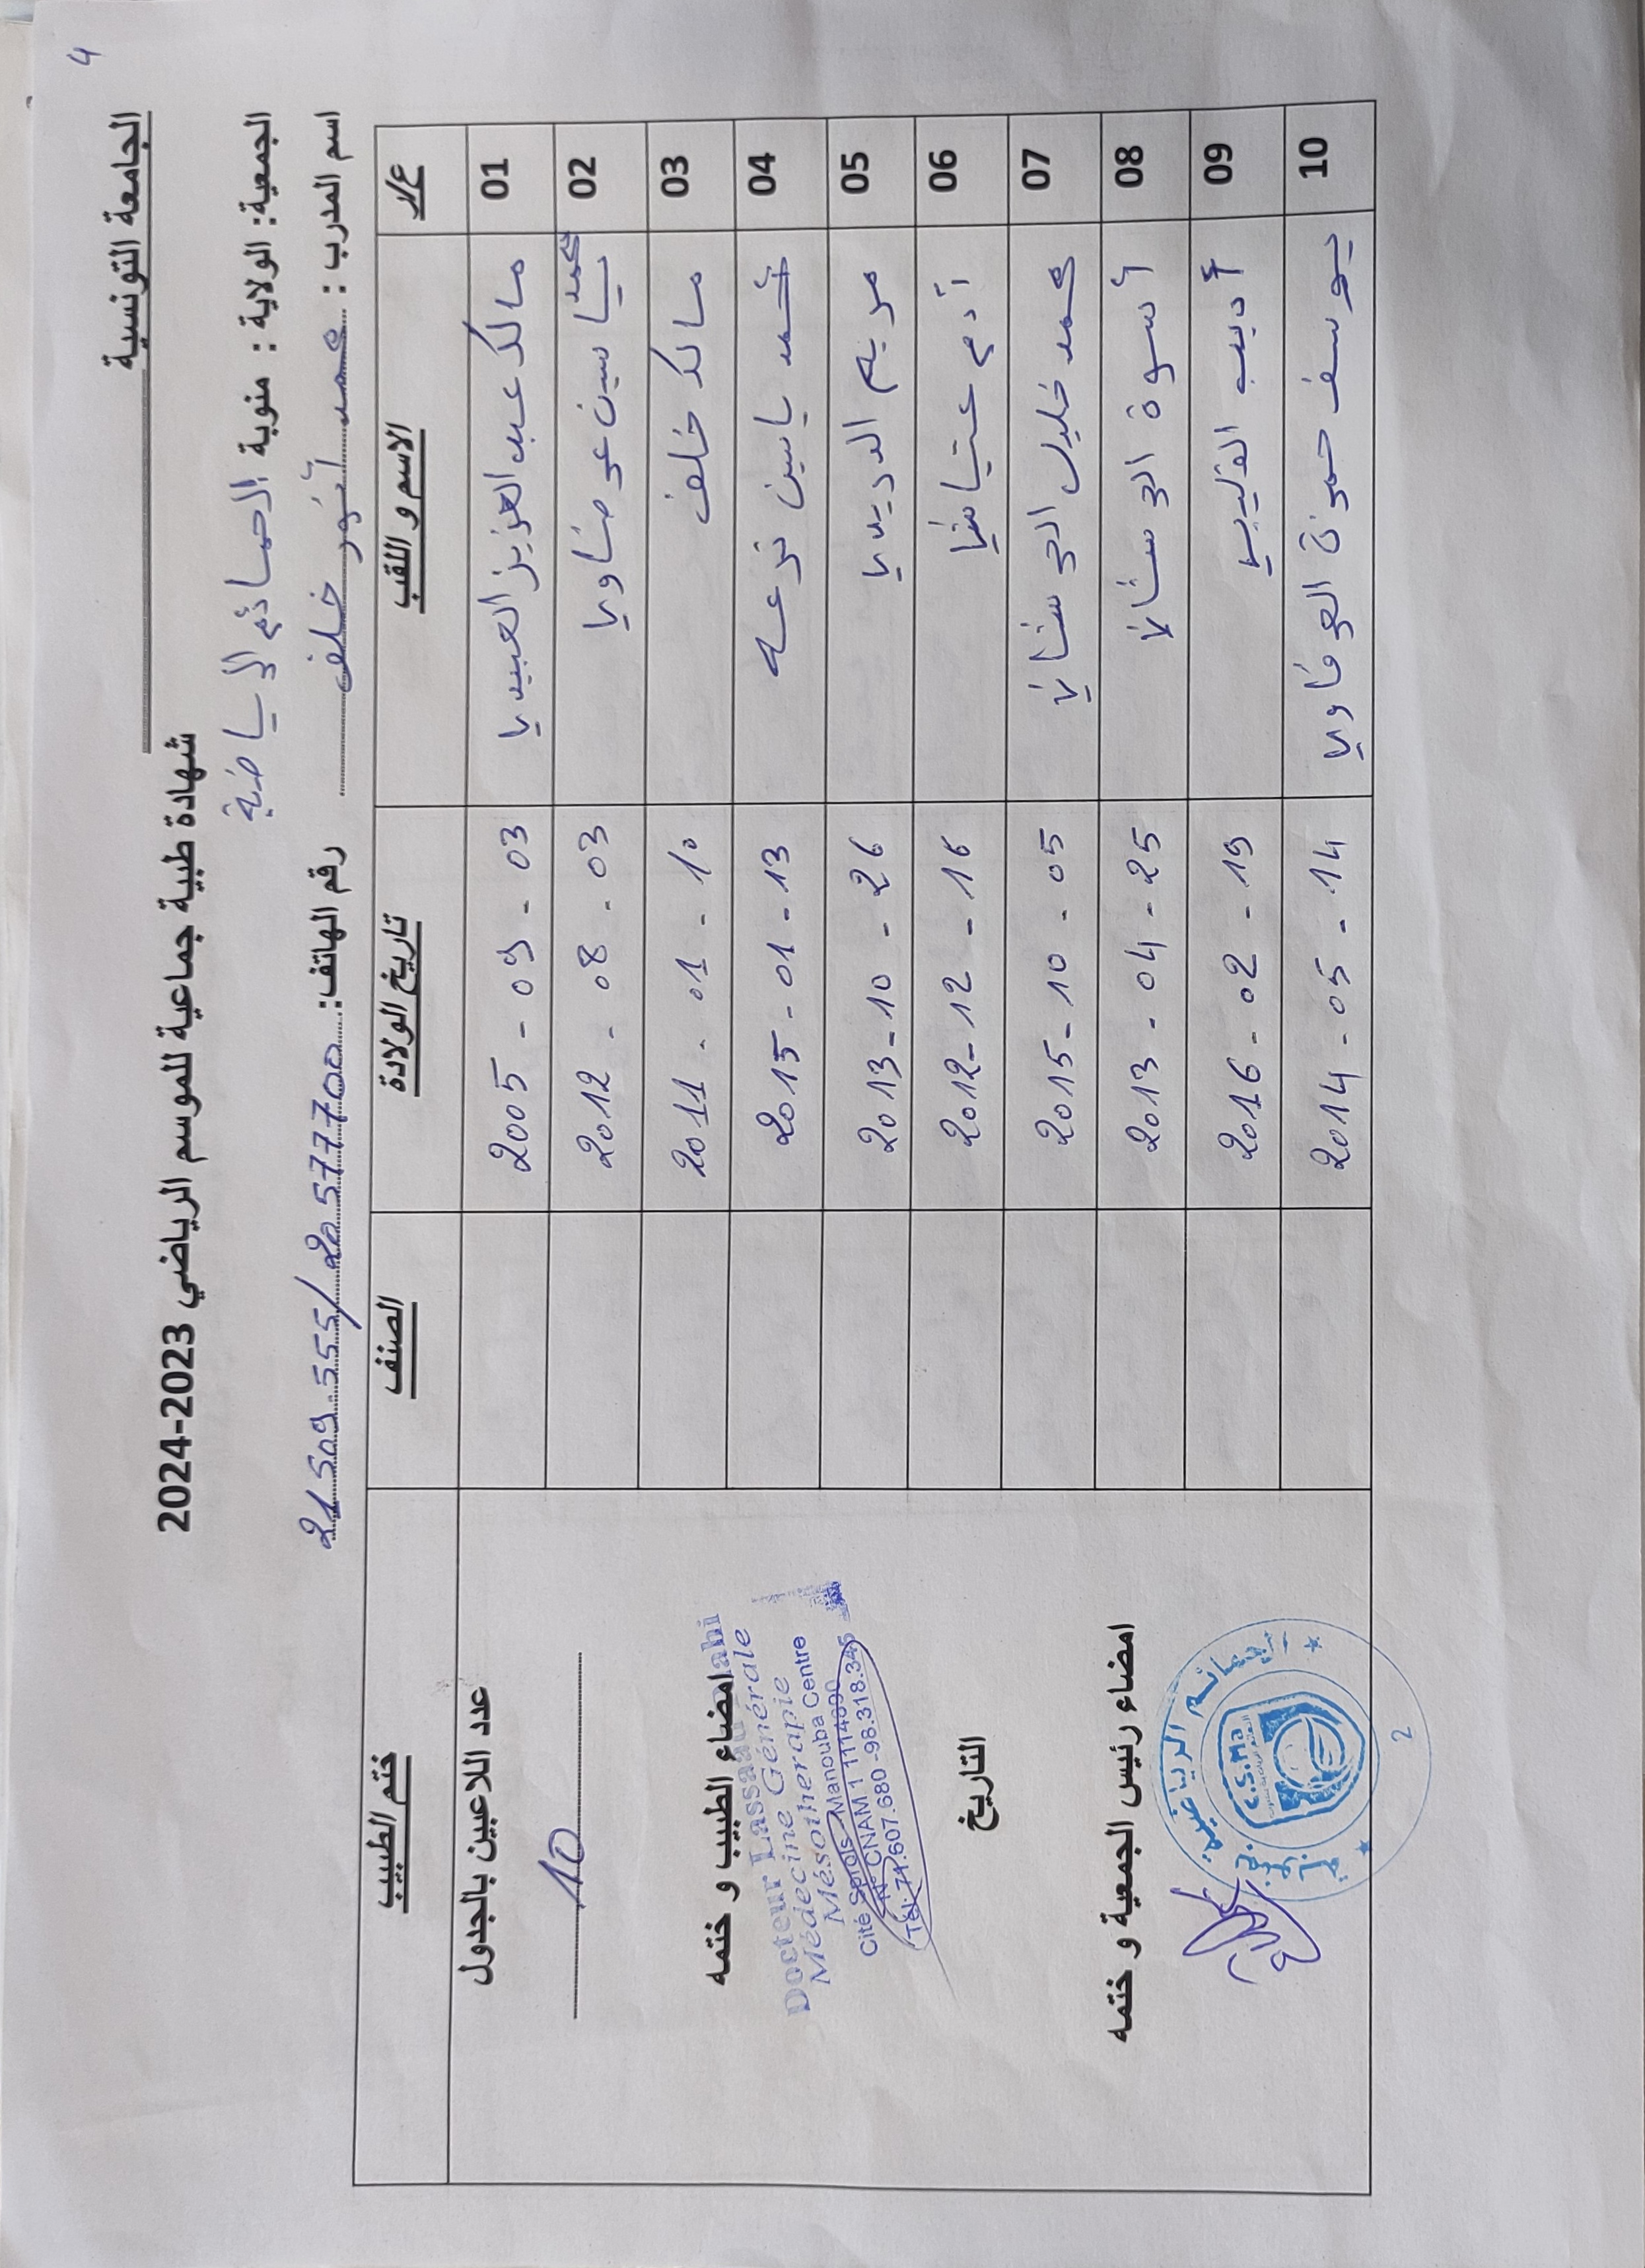 4
الجامعة التونسية
شهادة طبية جماعية للموسم الرياضي 2023-2024
الجمعية: الولاية : منوبة الحمائم الرياضية
اسم المدرب : محمد أنور خلف رقم الهاتف: 21 509 555/ 20 577700
ع/ر الاسم و اللقب تاريخ الولادة الصنف ختم الطبيب
01 مالك عبد العزيز العبيدي 2005 - 09 - 03
02 محمد ياسين عرضاوي 2012 - 08 - 03
03 مالك خلف 2011 - 01 - 10
04 محمد ياسين ترعة 2015 - 01 - 13
05 مريم الدريدي 2013 - 10 - 26
06 آدم 2012 - 12 - 16
07 محمد خليل الورشاني 2015 - 10 - 05
08 أسوة الورشاني 2013 - 04 - 25
09 أديب القليبي 2016 - 02 - 19
10 يوسف حمزة العرفاوي 2014 - 05 - 14
عدد اللاعبين بالجدول
10
امضاء الطبيب و ختمه
Docteur Lassaad
Médecine Générale
Mésothérapie
Cité Sprols Manouba Centre
N° CNAM 1
Tél: 71.607.680 - 98.318.345
التاريخ
امضاء رئيس الجمعية و ختمه
C.S.Ma
2